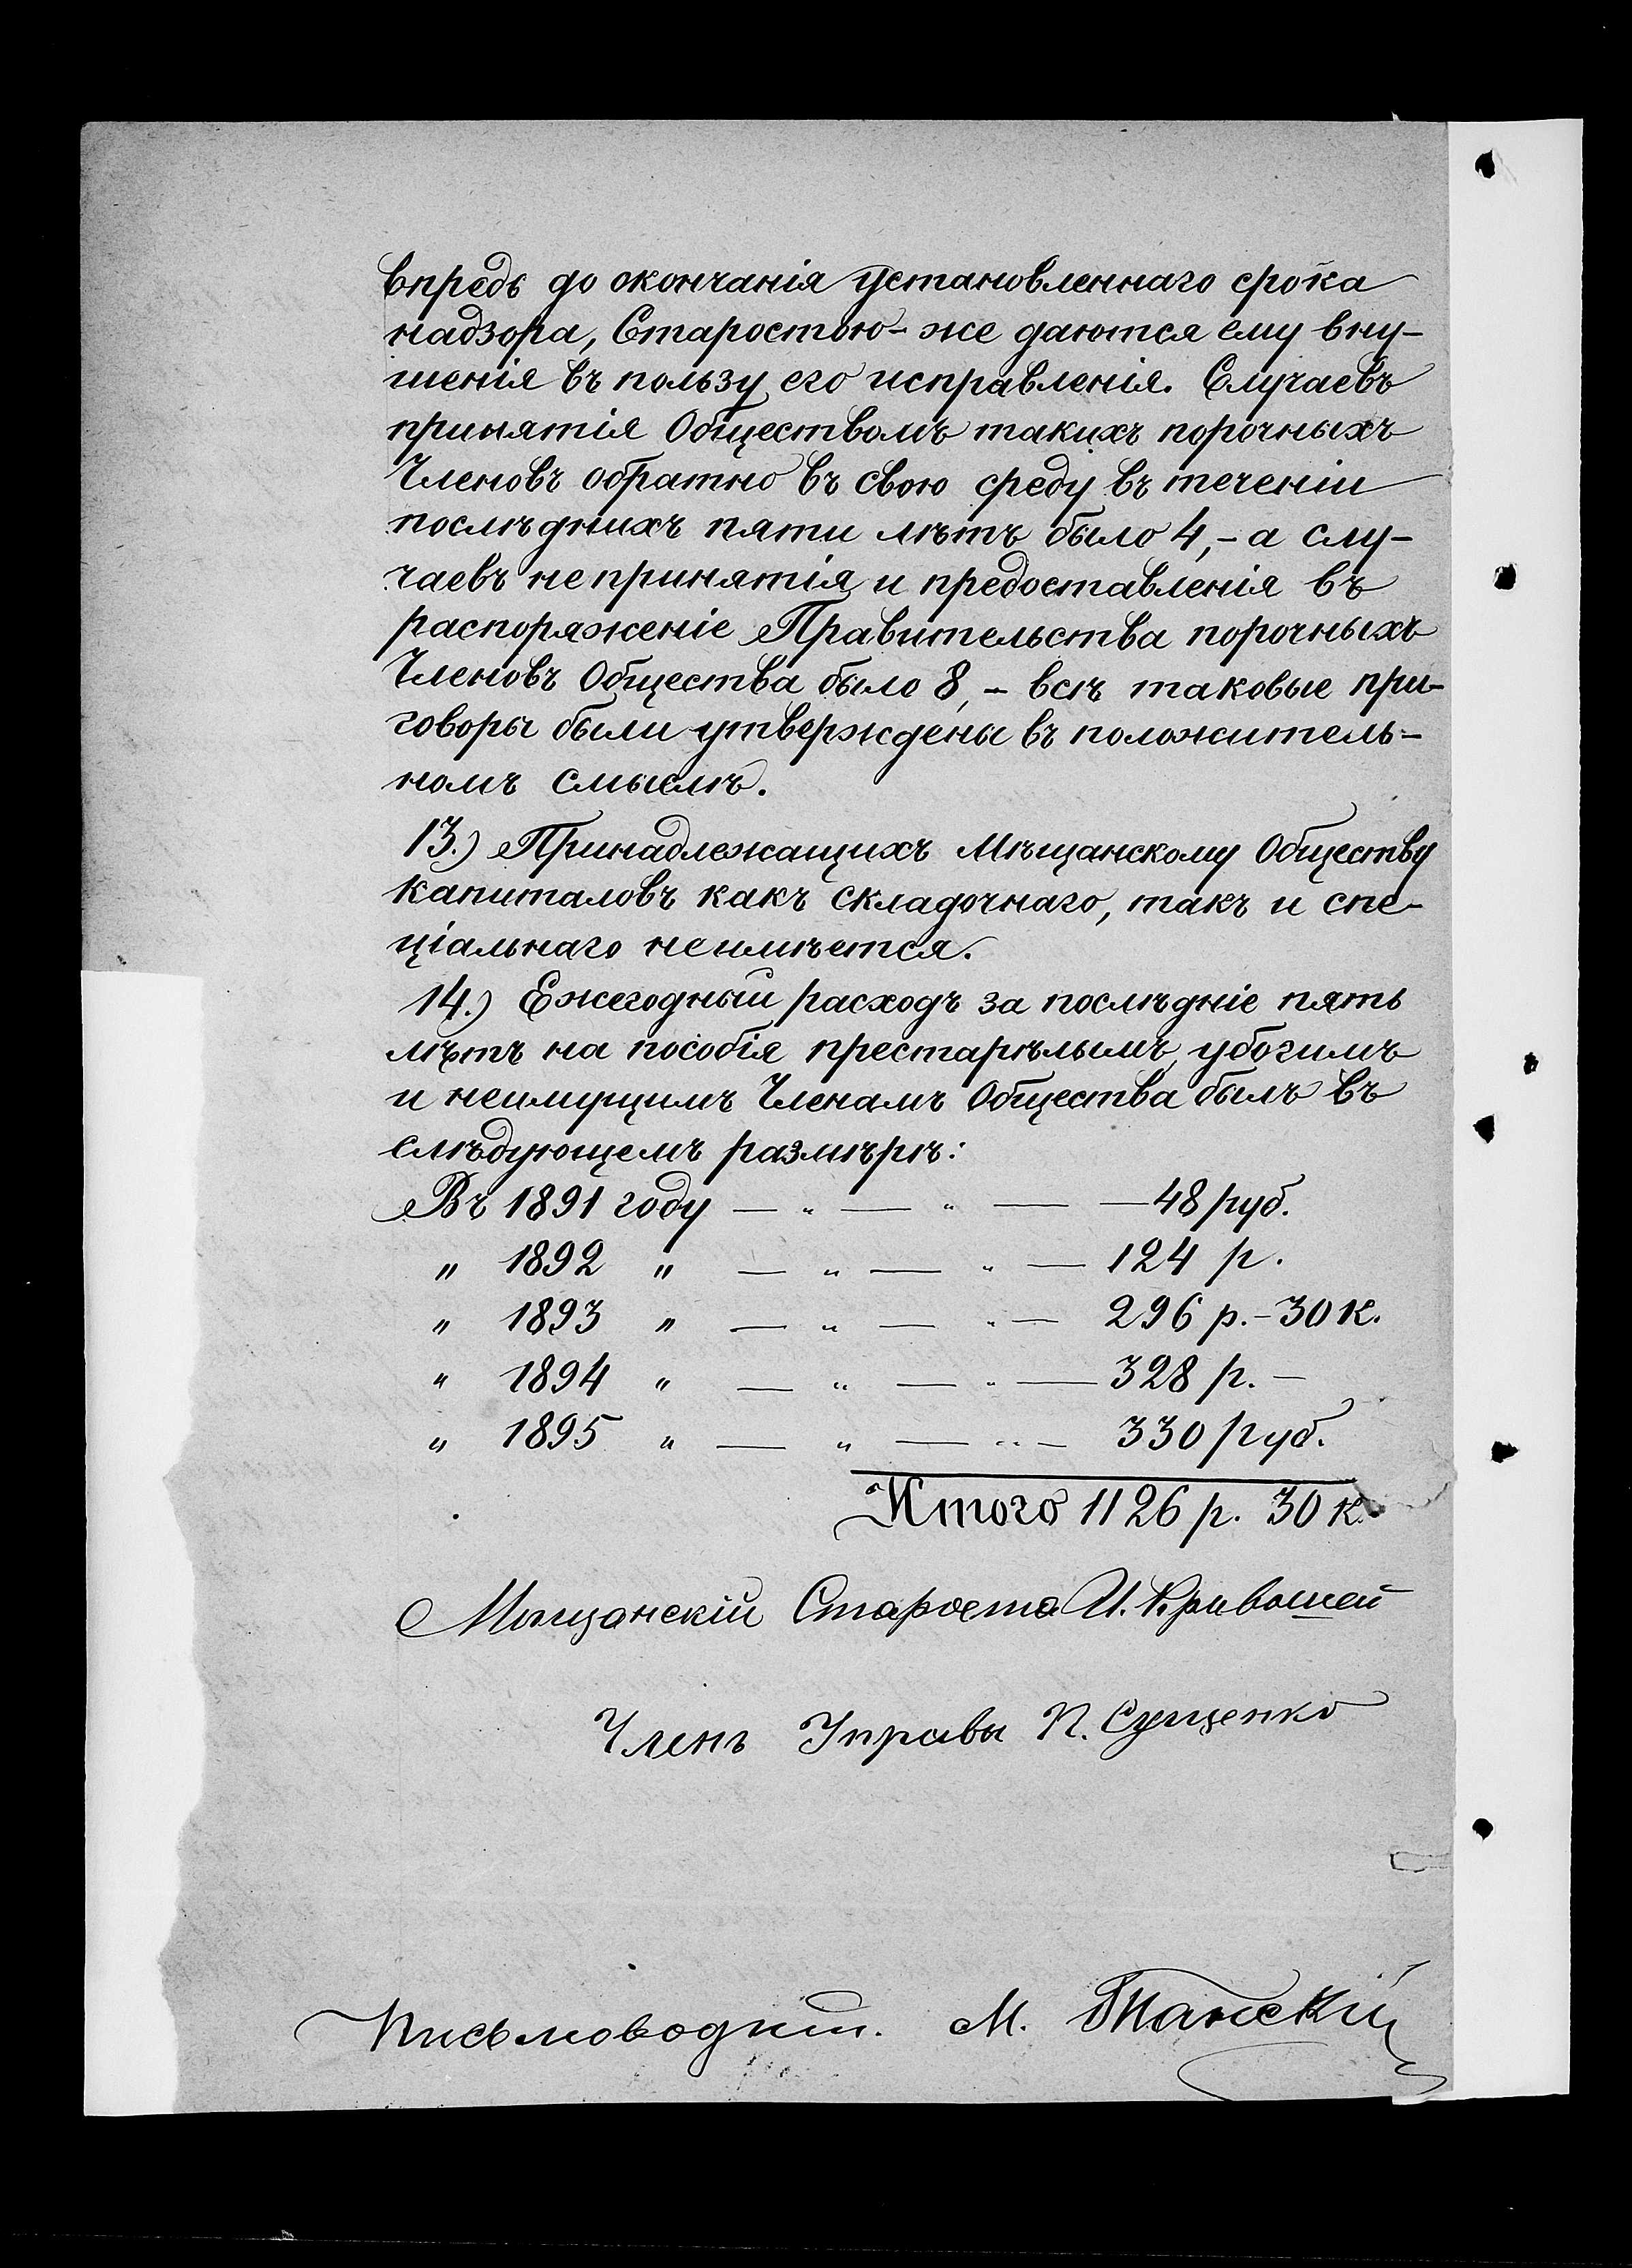 впредь до окончанія установленнаго срока
надзора, Старостою-же даются ему вну-
шенія въ пользу его исправленія. Случаевъ
принятія Обществомъ такихъ порочныхъ
Членовъ обратно въ свою среду въ теченіи
послѣднихъ пяти лѣтъ было 4,- а слу-
чаевъ непринятія и предоставленія въ
распоряженіе Правительства порочныхъ
Членовъ Общества было 8,- всѣ таковые при-
говоры были утверждены въ положитель-
номъ смыслѣ.
13.) Принадлежащихъ Мѣщанскому Обществу
капиталовъ какъ складочнаго, такъ и спе-
ціальнаго неимѣется.
14.) Ежегодный расходъ за послѣдніе пять
лѣтъ на пособія престарѣлымъ, убогимъ
и неимущимъ Членамъ Общества былъ въ
слѣдующемъ размѣрѣ:
Въ 1891 году — „ — „ — — 48 руб.
„ 1892 „ — „ — „ — 124 р.
„ 1893 „ — „ — „ — 296 р.-30 к.
„ 1894 „ — „ — „ — 328 р. —
„ 1895 „ — „ — „ — 330 руб.
Итого 1126 р. 30 к.
Мѣщанскій Староста И. Кривошей
Членъ Управы П. Сущенко
Письмоводит. М. Танскій